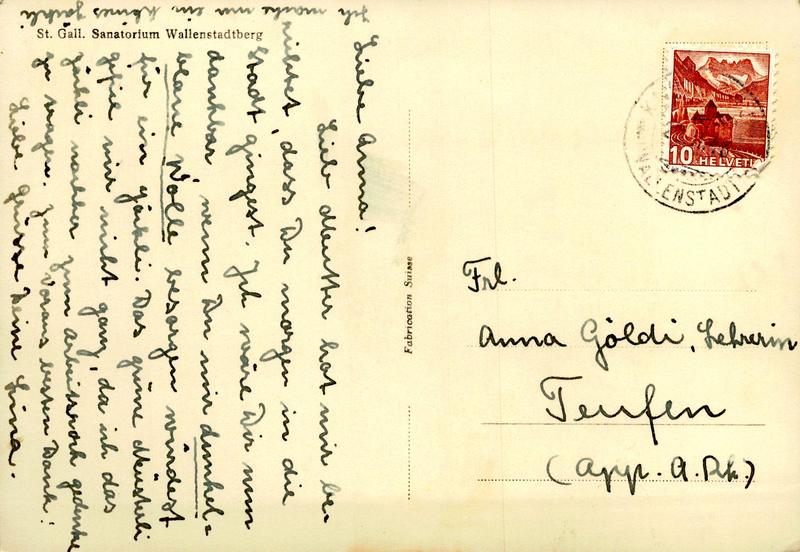 St. Gall. Sanatorium Wallenstadtberg
Liebe Anna!
Lieb Mutter hat mir be-
richtet, dass Du morgen in die
Stadt gingest. Ich wäre Dir nun
dankbar, wenn Du mir dunkel=
blaue Wolle besorgen würdest
für ein Jäckli. Das grüne Müsterli
gefiel mir nicht ganz, da ich das
Jäckli nachher zum Arbeitsrock gedenke
zu tragen. Zum Voraus besten Dank!
Liebe Grüsse Deine Lina.
Ich mache nun ein kleines Jäckli
Fabrication Suisse
10 HELVETIA
WALLENSTADT
Frl.
Anna Göldi, Lehrerin
Teufen
(App. A. Rh.)